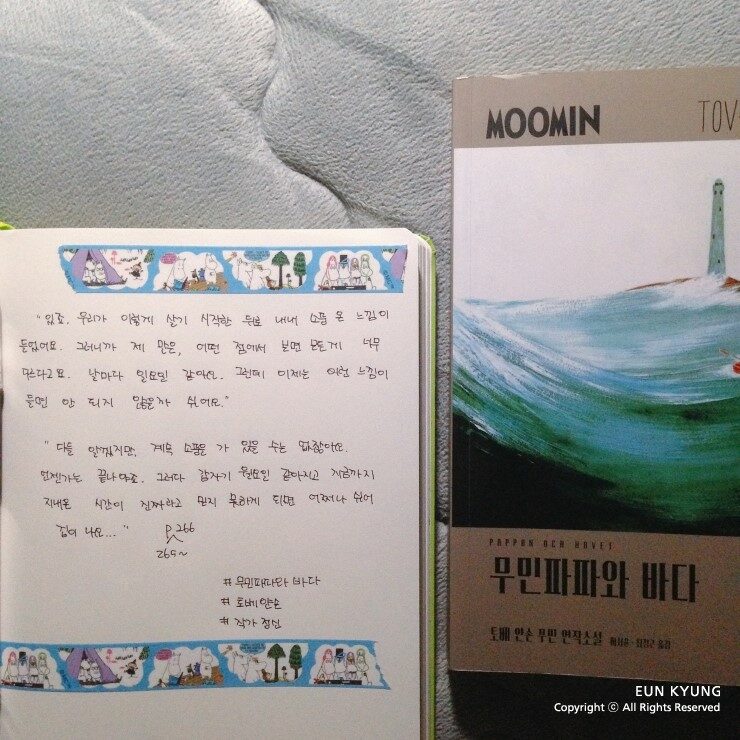 "있죠. 우리가 이렇게 살기 시작한 뒤로 내내 소풍 온 느낌이
들었어요. 그러니까 제 말은, 어떤 점에서 보면 모든게 너무
다르다고요. 날마다 일요일 같아요. 그런데 이제는 이런 느낌이
들면 안 되지 않을까 싶어요."
"다들 알겠지만, 계속 소풍만 가 있을 수는 없잖아요.
언젠가는 끝나야죠. 그러다 갑자기 월요일 같아지고 지금까지
지내온 시간이 진짜라고 믿지 못하게 되면 어쩌나 싶어
겁이 나요..." P.266
265~
#무민파파와 바다
#토베얀손
#작가정신
MOOMIN
TOV
PAPPAN OCH HAVET
무민파파와 바다
토베 얀손 무민 연작소설
EUN KYUNG
Copyright ⓒ All Rights Reserved